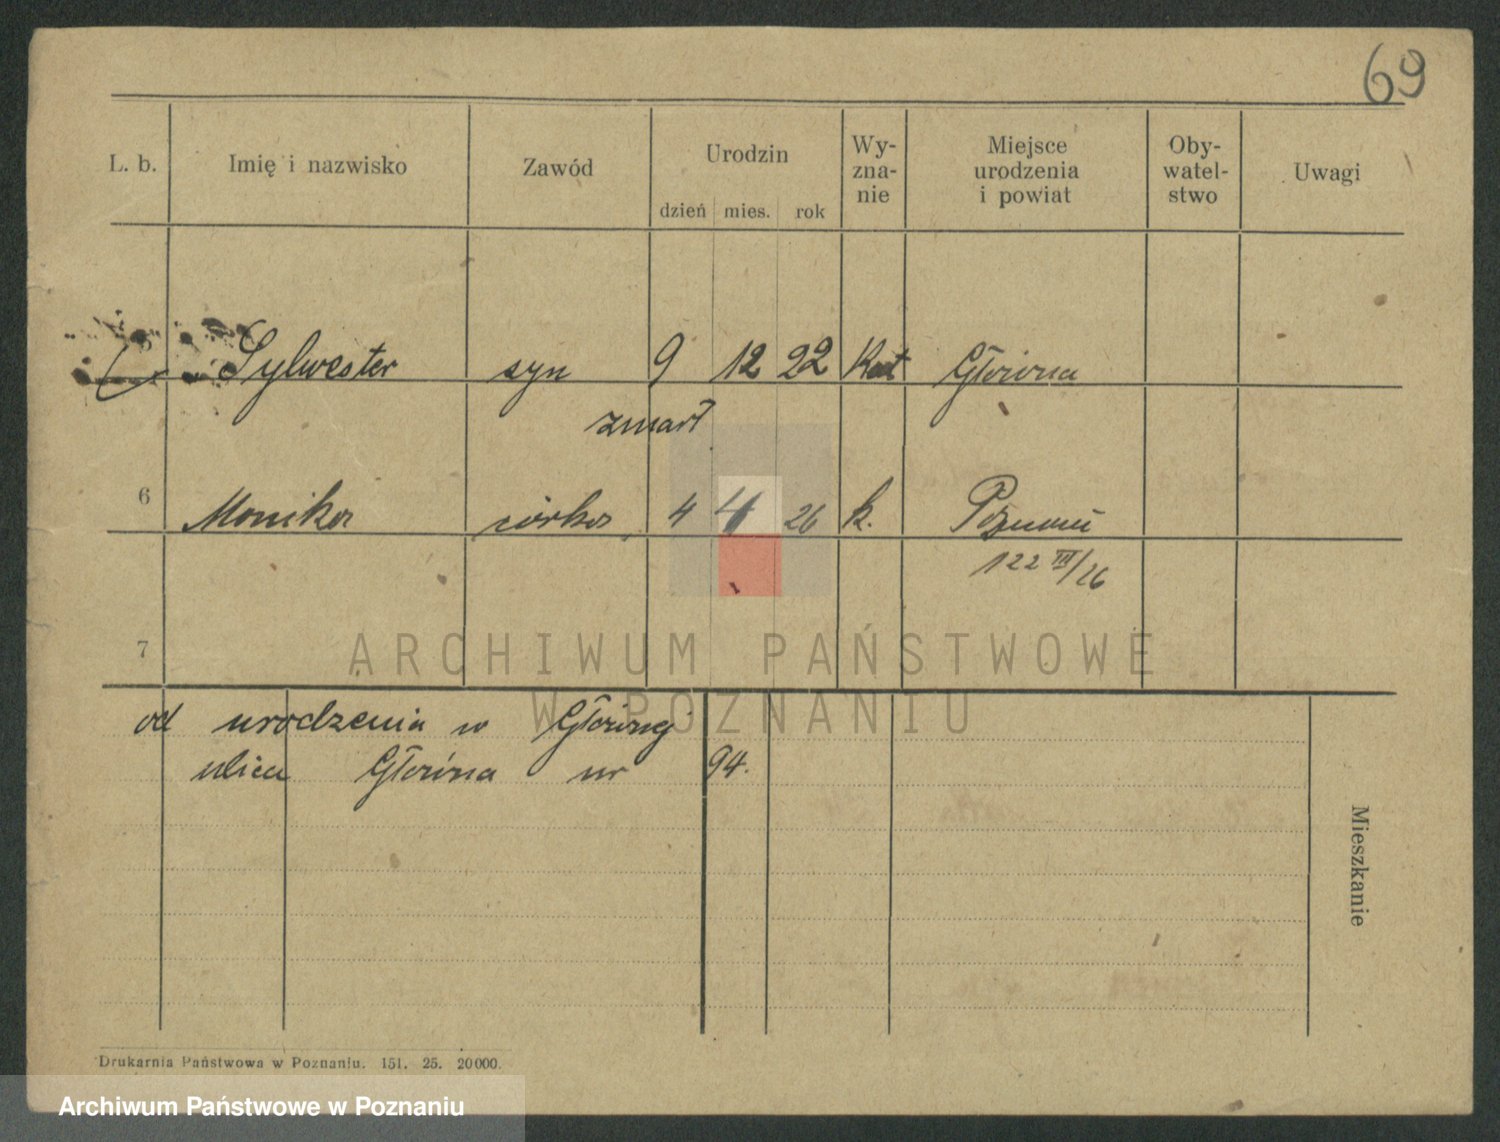 69
L. b. Imię i nazwisko Zawód Urodzin Wy-zna-nie Miejsce urodzenia i powiat Oby-watel-stwo Uwagi
dzień mies. rok
5 Sylwester syn 9 12 22 Kat Główna
zmarł
6 Monika córka 4 4 26 k. Poznań
122 III/26
7
od urodzenia w Głównej
ulica Główna nr 94.
Mieszkanie
Drukarnia Państwowa w Poznaniu. 151. 25. 20000.
ARCHIWUM PAŃSTWOWE
W POZNANIU
Archiwum Państwowe w Poznaniu